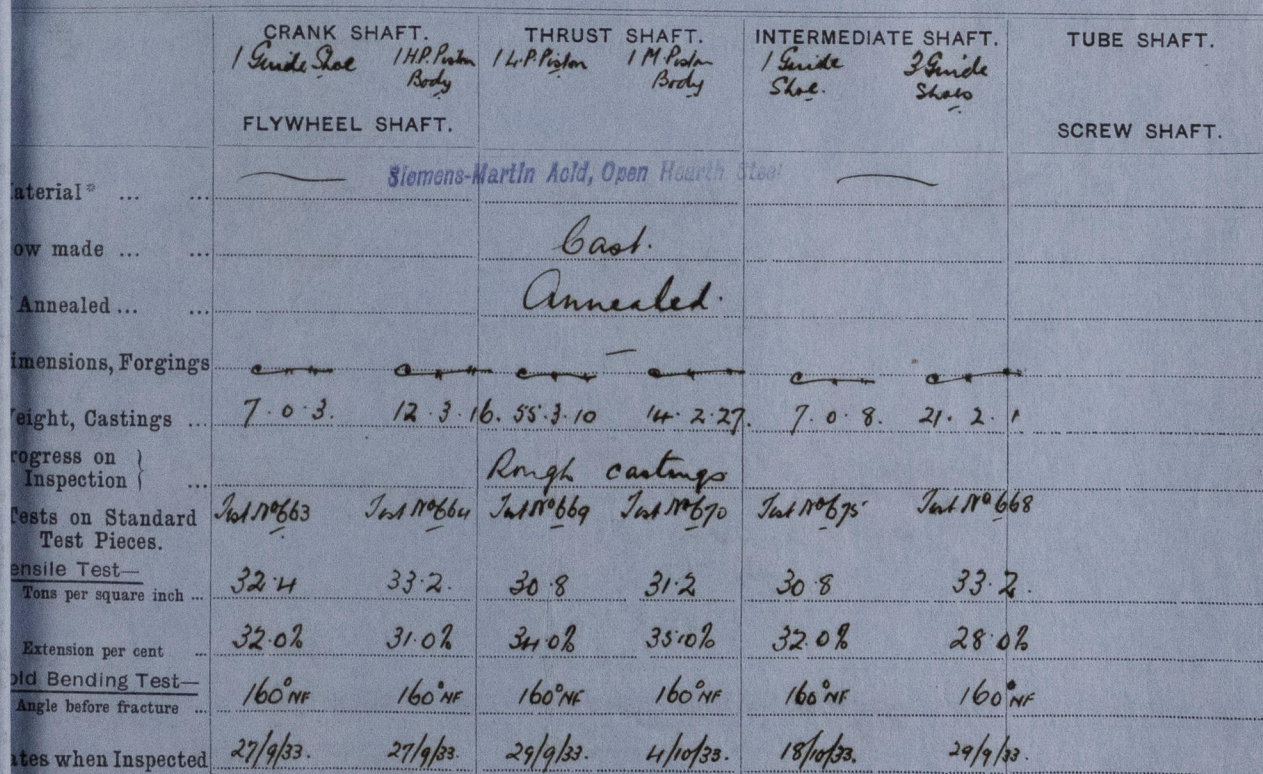 CRANK SHAFT. THRUST SHAFT. INTERMEDIATE SHAFT. TUBE SHAFT.
1 Guide Shoe 1 H.P. Piston Body 1 L.P. Piston 1 M. Piston Body 1 Guide Shoe. 3 Guide Shoes
FLYWHEEL SHAFT. SCREW SHAFT.
aterial* ... ... Siemens-Martin Acid, Open Hearth Steel
ow made ... ... Cast.
Annealed ... ... Annealed.
imensions, Forgings
eight, Castings ... 7 . 0 . 3. 12 . 3 . 16. 55 . 3 . 10 14 . 2 . 27. 7 . 0 . 8. 21 . 2 . 1
rogress on } Inspection { ... Rough castings
Tests on Standard Test Pieces. Test No 663 Test No 664 Test No 669 Test No 670 Test No 675 Test No 668
ensile Test—
Tons per square inch ... 32.4 33.2. 30.8 31.2 30.8 33.2.
Extension per cent ... 32.0% 31.0% 34.0% 35.0% 32.0% 28.0%
old Bending Test—
Angle before fracture ... 160° NF 160° NF 160° NF 160° NF 160° NF 160° NF
ates when Inspected 27/9/33. 27/9/33. 29/9/33. 4/10/33. 18/10/33. 29/9/33.